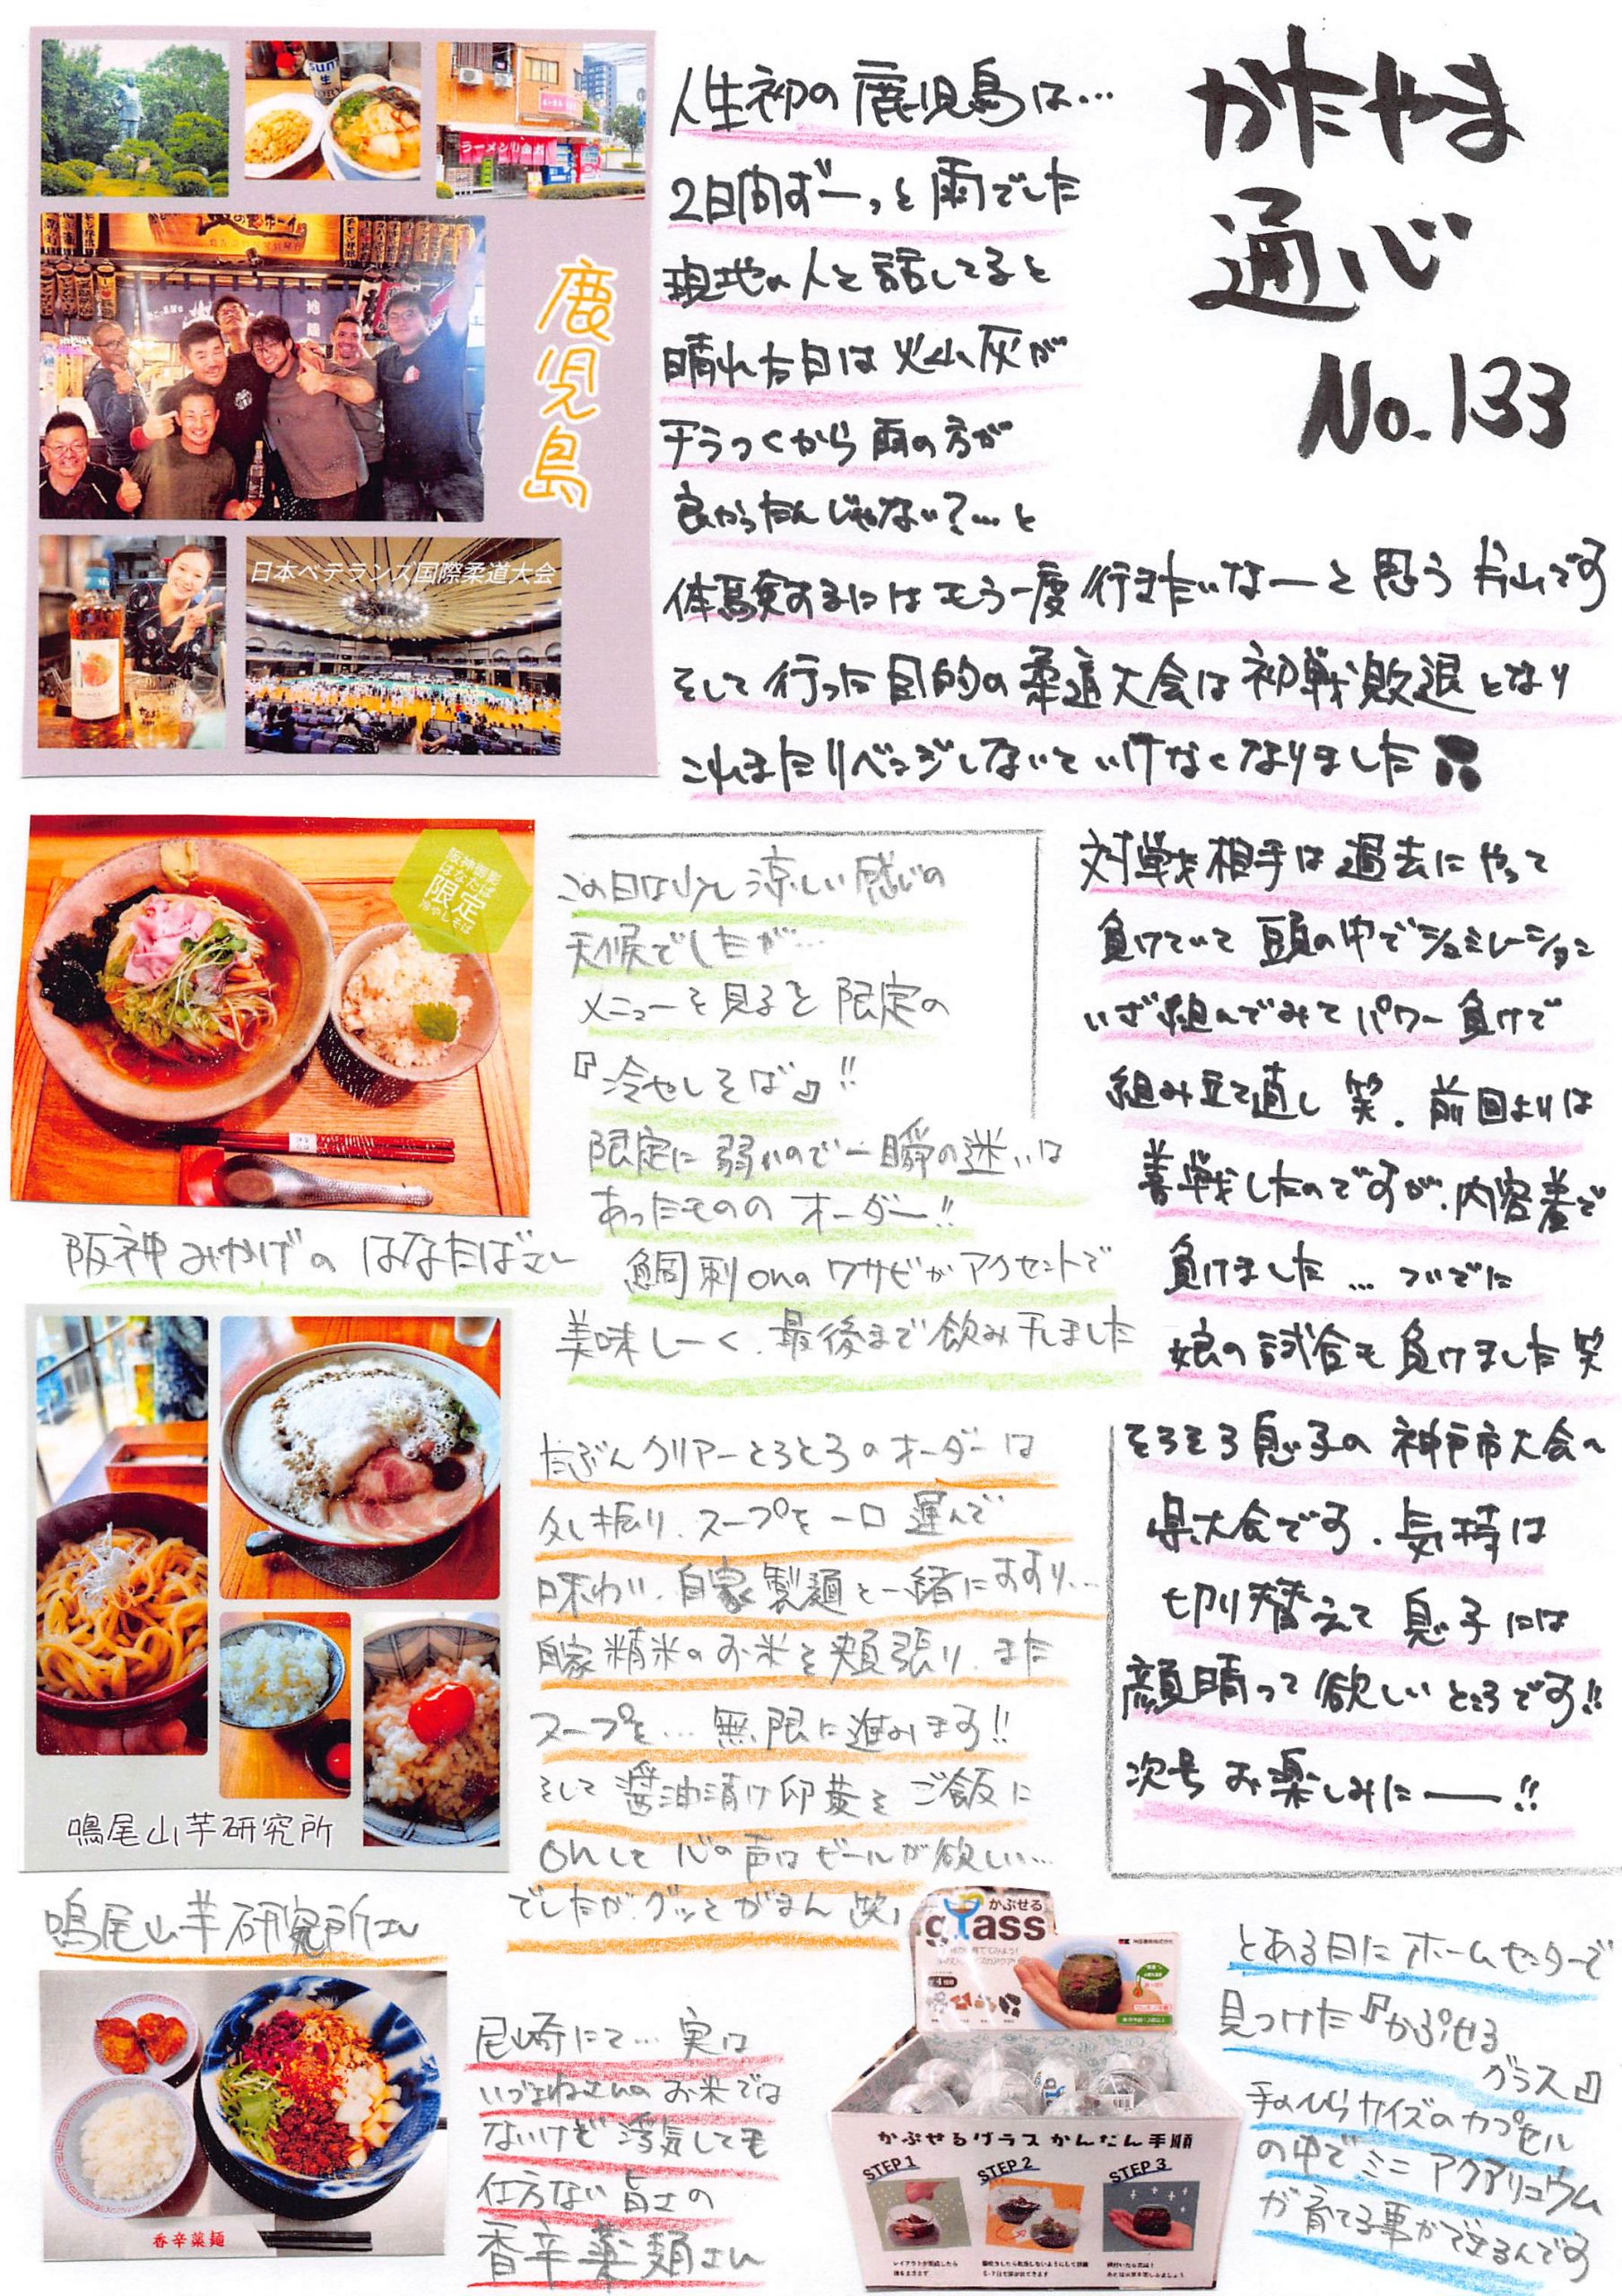 かたやま
通心
No.133
人生初の鹿児島は…
2日間ずーっと雨でした
現地の人と話してると
晴れた日は火山灰が
チラつくから雨の方が
良かったんじゃない?…と
体験するにはもう一度行きたいなーと思う片山です
そして行った目的の柔道大会は初戦敗退となり
これまたリベンジしないといけなくなりました
鹿児島
ラーメン小金太
日本ベテランズ国際柔道大会
対戦相手は過去にやって
負けていて頭の中でシュミレーション
いざ組んでみてパワー負けで
組み立て直し笑. 前回よりは
善戦したのですが、内容差で
負けました… ついでに
娘の試合も負けました笑
そろそろ息子の神戸市大会〜
県大会です、気持は
切り替えて息子には
顔晴って欲しいところです!!
次号お楽しみにー!!
阪神御影
はなたば
限定
冷やしそば
阪神みかげの はなたばさん
この日は少し涼しい感じの
天候でしたが…
メニューを見ると限定の
『冷やしそば』!!
限定に弱いので一瞬の迷いは
あったものの オーダー!!
鯛刺onのワサビがアクセントで
美味しーく、最後まで飲み干しました
鳴尾山芋研究所
鳴尾山芋研究所さん
たぶんクリアーとろとろのオーダーは
久し振り、スープを一口運んで
味わい、自家製麺と一緒にすすり…
自家精米のお米を頬張り、また
スープを… 無限に進みます!!
そして醤油漬け卵黄をご飯に
onして心の声はビールが欲しい…
でしたが、グッとがまん(笑)
香辛薬麺
尼崎にて… 実は
いづよねさんのお米では
ないけど浮気しても
仕方ない旨さの
香辛薬麺さん
かぷせる
glass
かぷせるグラス かんたん手順
STEP 1
STEP 2
STEP 3
とある日にホームセンターで
見つけた『かぷせる
グラス』
手のひらサイズのカプセル
の中でミニアクアリュウム
が育てる事ができるんです